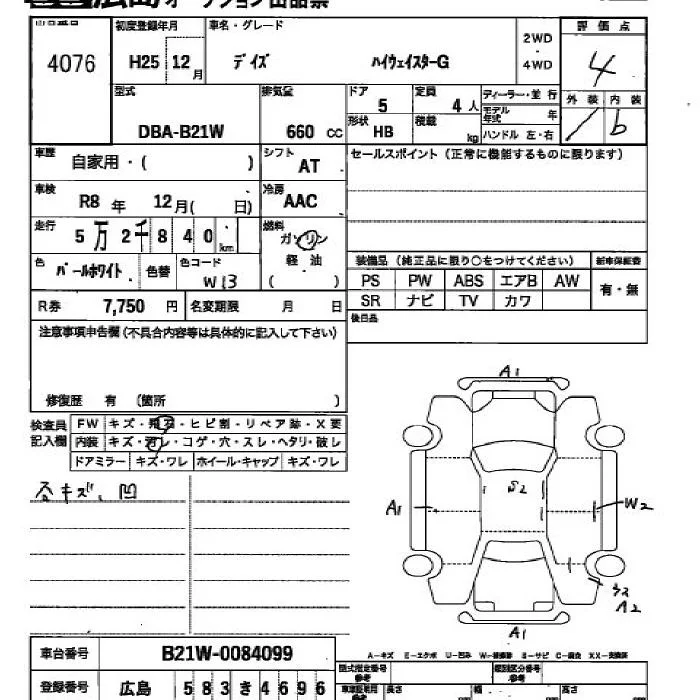 広島 オークション出品票
出品番号 4076
初度登録年月 H25 12月
車名・グレード デイズ ハイウェイスターG
2WD・4WD
評価点 4
外装 内装 b
型式 DBA-B21W
排気量 660 cc
ドア 5
定員 4人
形状 HB
積載 kg
ディーラー・並行
モデル年式 年
ハンドル 左・右
車歴 自家用・( )
シフト AT
セールスポイント (正常に機能するものに限ります)
車検 R8年 12月( 日)
冷房 AAC
走行 5万2千840 km
燃料 ガソリン 軽油 ( )
色 パールホワイト 色替
色コード W13
装備品 (純正品に限り○をつけてください)
新車保証書 有・無
PS PW ABS エアB AW
SR ナビ TV カワ
後日品
R券 7,750 円
名変期限 月 日
注意事項申告欄 (不具合内容等は具体的に記入して下さい)
修復歴 有 (箇所 )
検査員記入欄
FW キズ・飛石・ヒビ割・リペア跡・X要
内装 キズ・汚レ・コゲ・穴・スレ・ヘタリ・破レ
ドアミラー キズ・ワレ ホイール・キャップ キズ・ワレ
各キズ、凹
A1
S2
A1
W2
A2
A1
A-キズ E-エクボ U-凹み W-補修跡 S-サビ C-腐食 XX-交換済
車台番号 B21W-0084099
登録番号 広島 583 き 4696
型式指定番号 参考
類別区分番号 参考
長さ 幅 高さ